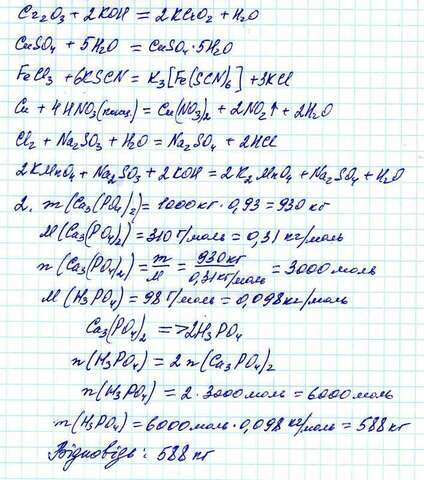 Cr₂O₃ + 2KOH = 2KCrO₂ + H₂O
CuSO₄ + 5H₂O = CuSO₄·5H₂O
FeCl₃ + 6KSCN = K₃[Fe(SCN)₆] + 3KCl
Cu + 4HNO₃(конц.) = Cu(NO₃)₂ + 2NO₂↑ + 2H₂O
Cl₂ + Na₂SO₃ + H₂O = Na₂SO₄ + 2HCl
2KMnO₄ + Na₂SO₃ + 2KOH = 2K₂MnO₄ + Na₂SO₄ + H₂O
2. m(Ca₃(PO₄)₂) = 1000кг · 0,93 = 930 кг
M(Ca₃(PO₄)₂) = 310 г/моль = 0,31 кг/моль
n(Ca₃(PO₄)₂) = m/M = 930кг/0,31кг/моль = 3000 моль
M(H₃PO₄) = 98 г/моль = 0,098кг/моль
Ca₃(PO₄)₂ => 2H₃PO₄
n(H₃PO₄) = 2 n(Ca₃PO₄)₂
n(H₃PO₄) = 2 · 3000моль = 6000моль
m(H₃PO₄) = 6000моль · 0,098 кг/моль = 588 кг
Відповідь: 588 кг